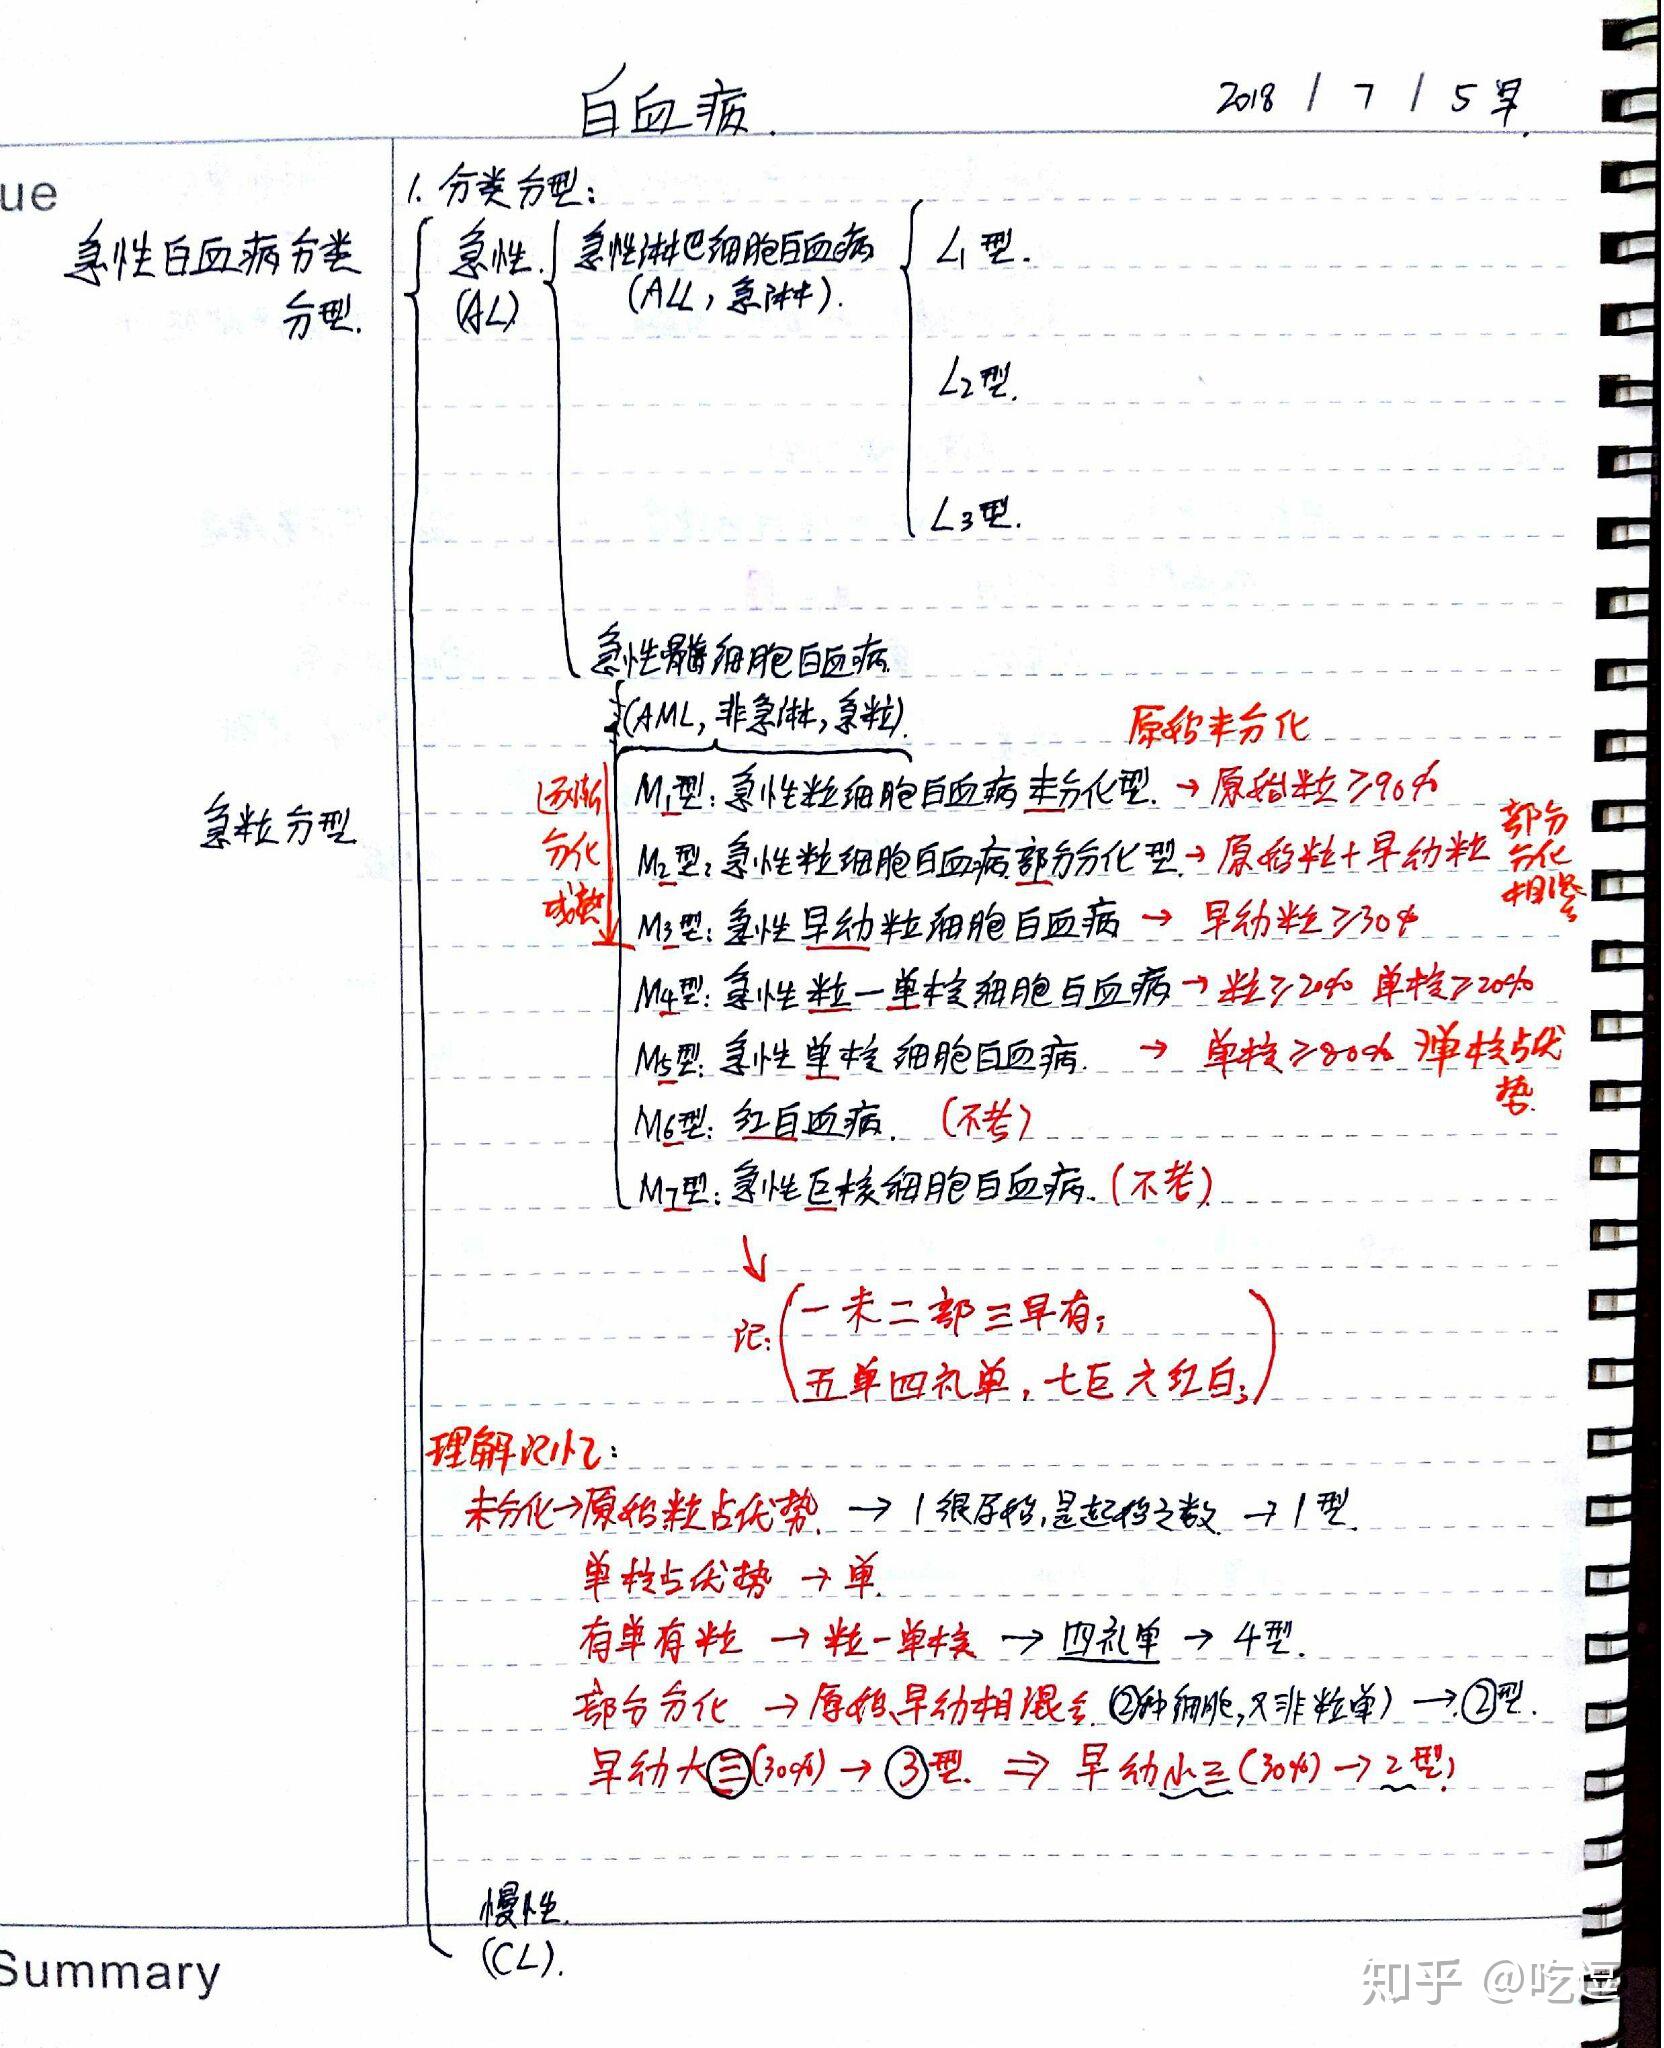 白血病.
2018 / 7 / 5 早.
ue
1. 分类分型:
急性白血病分类
分型.
急性.
(AL)
急性淋巴细胞白血病
(ALL, 急淋).
L1型.
L2型.
L3型.
急性髓细胞白血病.
(AML, 非急淋, 急粒).
原始未分化
急粒分型
逐渐
分化
成熟
M1型: 急性粒细胞白血病未分化型. → 原始粒≥90%
M2型: 急性粒细胞白血病部分分化型. → 原始粒+早幼粒
部分
分化
相当
M3型: 急性早幼粒细胞白血病 → 早幼粒≥30%
M4型: 急性粒一单核细胞白血病 → 粒≥20% 单核≥20%
M5型: 急性单核细胞白血病. → 单核≥80% 单核占优
势.
M6型: 红白血病. (不考)
M7型: 急性巨核细胞白血病. (不考)
记: 一未二部三早有;
五单四礼单, 七巨六红白;
理解记忆:
未分化→原始粒占优势. → 1很原始,是起始之数. → 1型.
单核占优势 → 单.
有单有粒 → 粒一单核 → 四礼单 → 4型.
部分分化 → 原始、早幼相混合. (②种细胞,又非粒单) → ②型.
早幼大三(30%) → ③型. ⇒ 早幼小三(30%) → 2型;
慢性.
(CL).
Summary
知乎 @吃逗